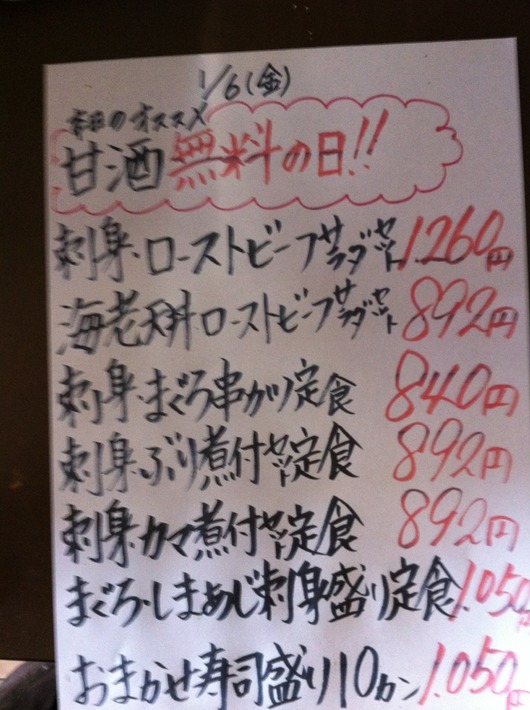 1/6(金)
本日のオススメ
甘酒無料の日!!
刺身・ローストビーフサラダセット1260円
海老天丼ローストビーフサラダセット892円
刺身・まぐろ串かつ定食 840円
刺身・ぶり煮付セット定食 892円
刺身・カマ煮付セット定食 892円
まぐろ・しまあじ刺身盛り定食1.050円
おまかせ寿司盛り10カン1.050円